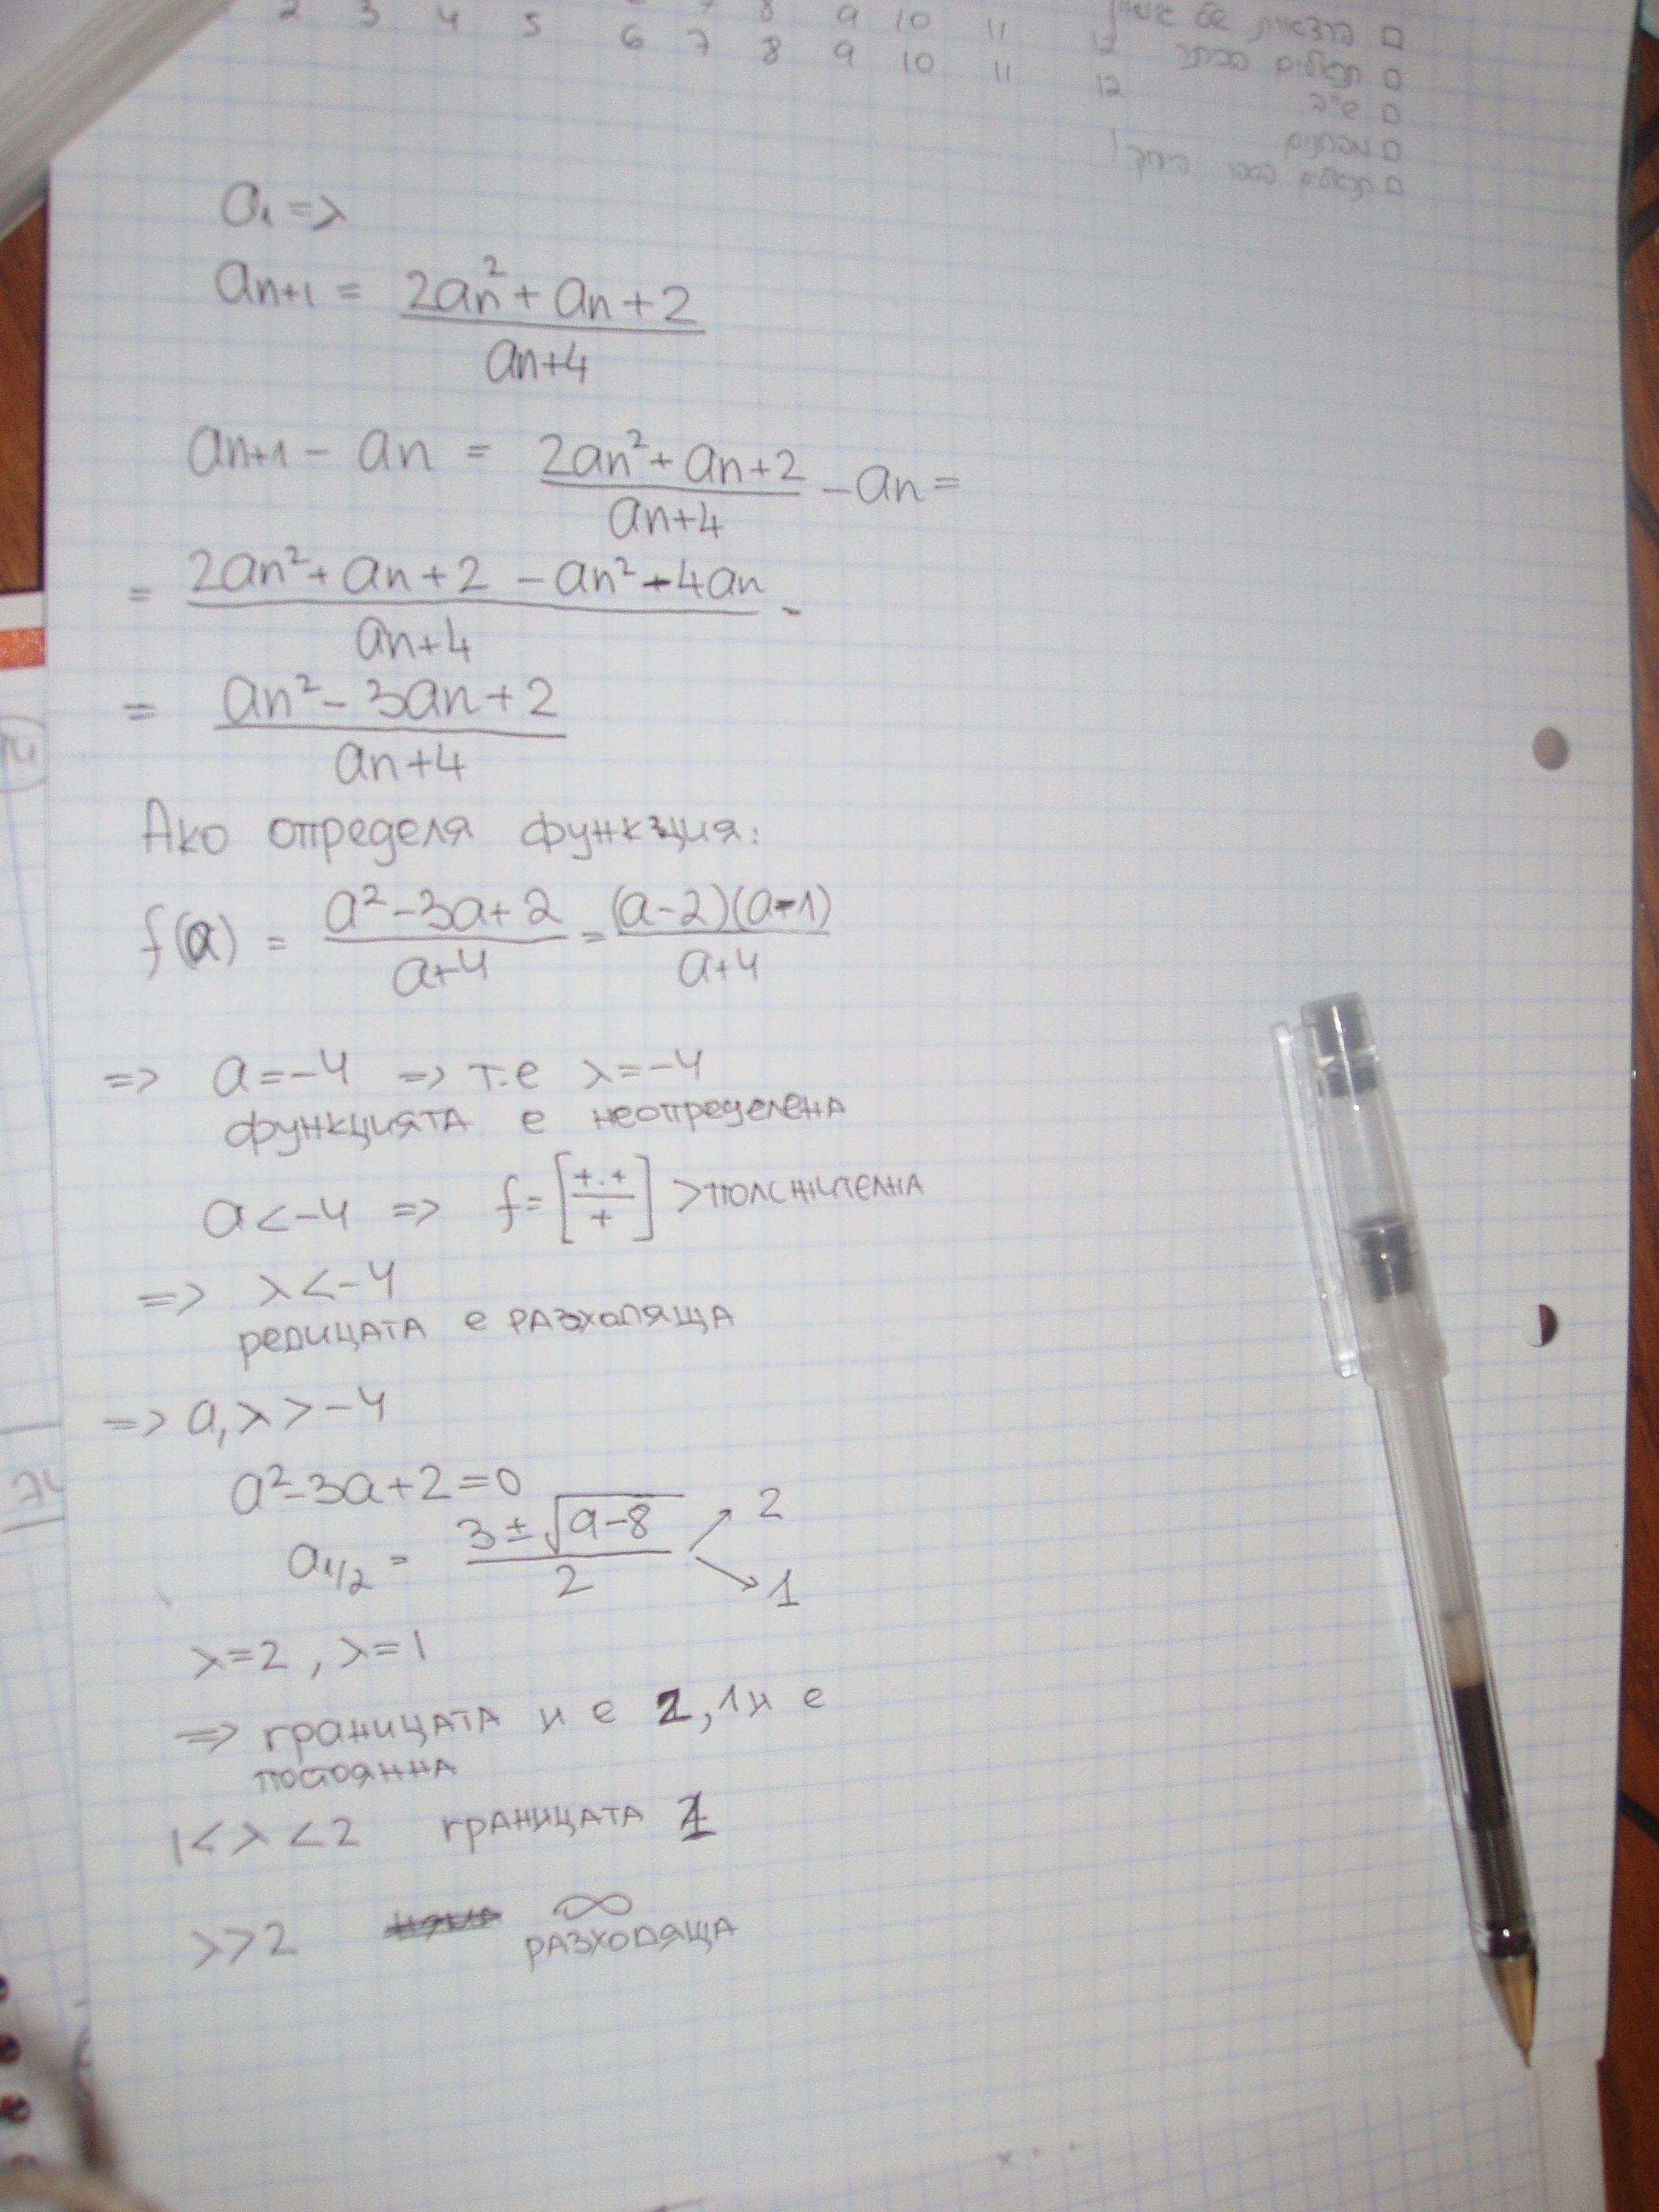 2 3 4 5 7 8 9 10 11 12
6 7 8 9 10 11 12
a₁ = λ
aₙ₊₁ = (2aₙ² + aₙ + 2) / (aₙ+4)
aₙ₊₁ - aₙ = (2aₙ² + aₙ + 2) / (aₙ+4) - aₙ =
= (2aₙ² + aₙ + 2 - aₙ² - 4aₙ) / (aₙ+4) -
= (aₙ² - 3aₙ + 2) / (aₙ+4)
Ако определя функция:
f(a) = (a² - 3a + 2) / (a+4) = (a-2)(a-1) / (a+4)
=> a = -4 => т.е λ = -4
функцията е неопределена
a < -4 => f = [+.+ / +] > положителна
=> λ < -4
редицата е разходяща
=> a, λ > -4
a² - 3a + 2 = 0
a₁/₂ = (3 ± √(9-8)) / 2 ↗ 2 ↘ 1
λ = 2, λ = 1
=> границата и е 2, 1 и е
постоянна
1 < λ < 2 границата 1
λ > 2 ∞
разходяща